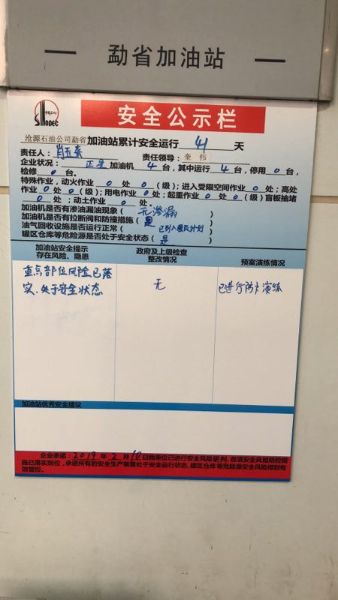 勐省加油站
安全公示栏
沧源石油公司勐省加油站累计安全运行 41 天
责任人： 责任领导：李伟
企业状况：正常 加油机 4 台，其中运行 4 台，停用 0 台，
检修 0 台。
特殊作业，动火作业 0 处 0 （级）；进入受限空间作业 0 处；高处
作业 0 处 0 （级）；用电作业 0 处；起重作业 0 处 0 （级）盲板抽堵
0 处；动土作业 0 处。
加油机是否有渗油漏油现象（无渗漏）
加油机是否有拉断阀和防撞措施（是）
油气回收设施是否运行正常（已列入建设计划）
罐区仓库等危险源是否处于安全状态（是）
加油站安全提示
存在风险、隐患
政府及上级检查
整改情况
预案演练情况
重点部位风险已落
实、处于安全状态
无
已进行防卡演练
加油站优秀安全建议
企业承诺：2019年2月10日